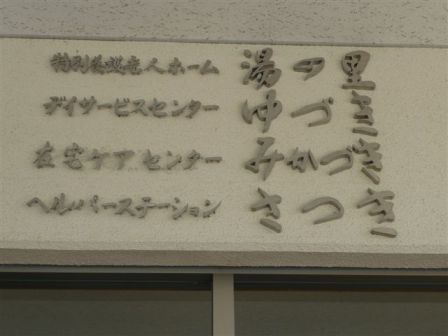 特別養護老人ホーム 湯の里
デイサービスセンター ゆづき
在宅ケアセンター みかづき
ヘルパーステーション さつき